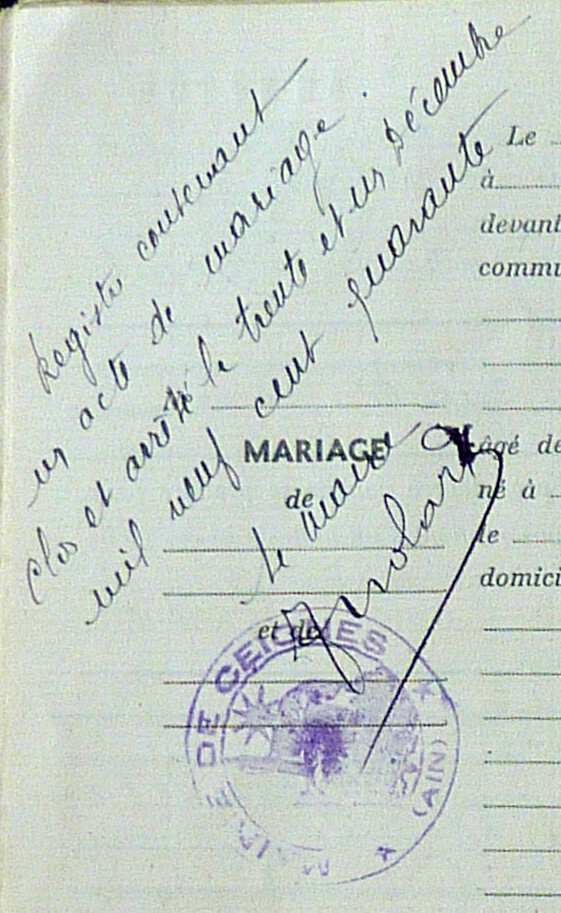 Registre contenant
un acte de mariage.
Clos et arrêté le trente et un Décembre
mil neuf cent quarante
Le maire
MARIAGE
de
et de
Le
à
devant
commu
âgé de
né à
le
domici
MAIRIE DE CEIGNES
(AIN)